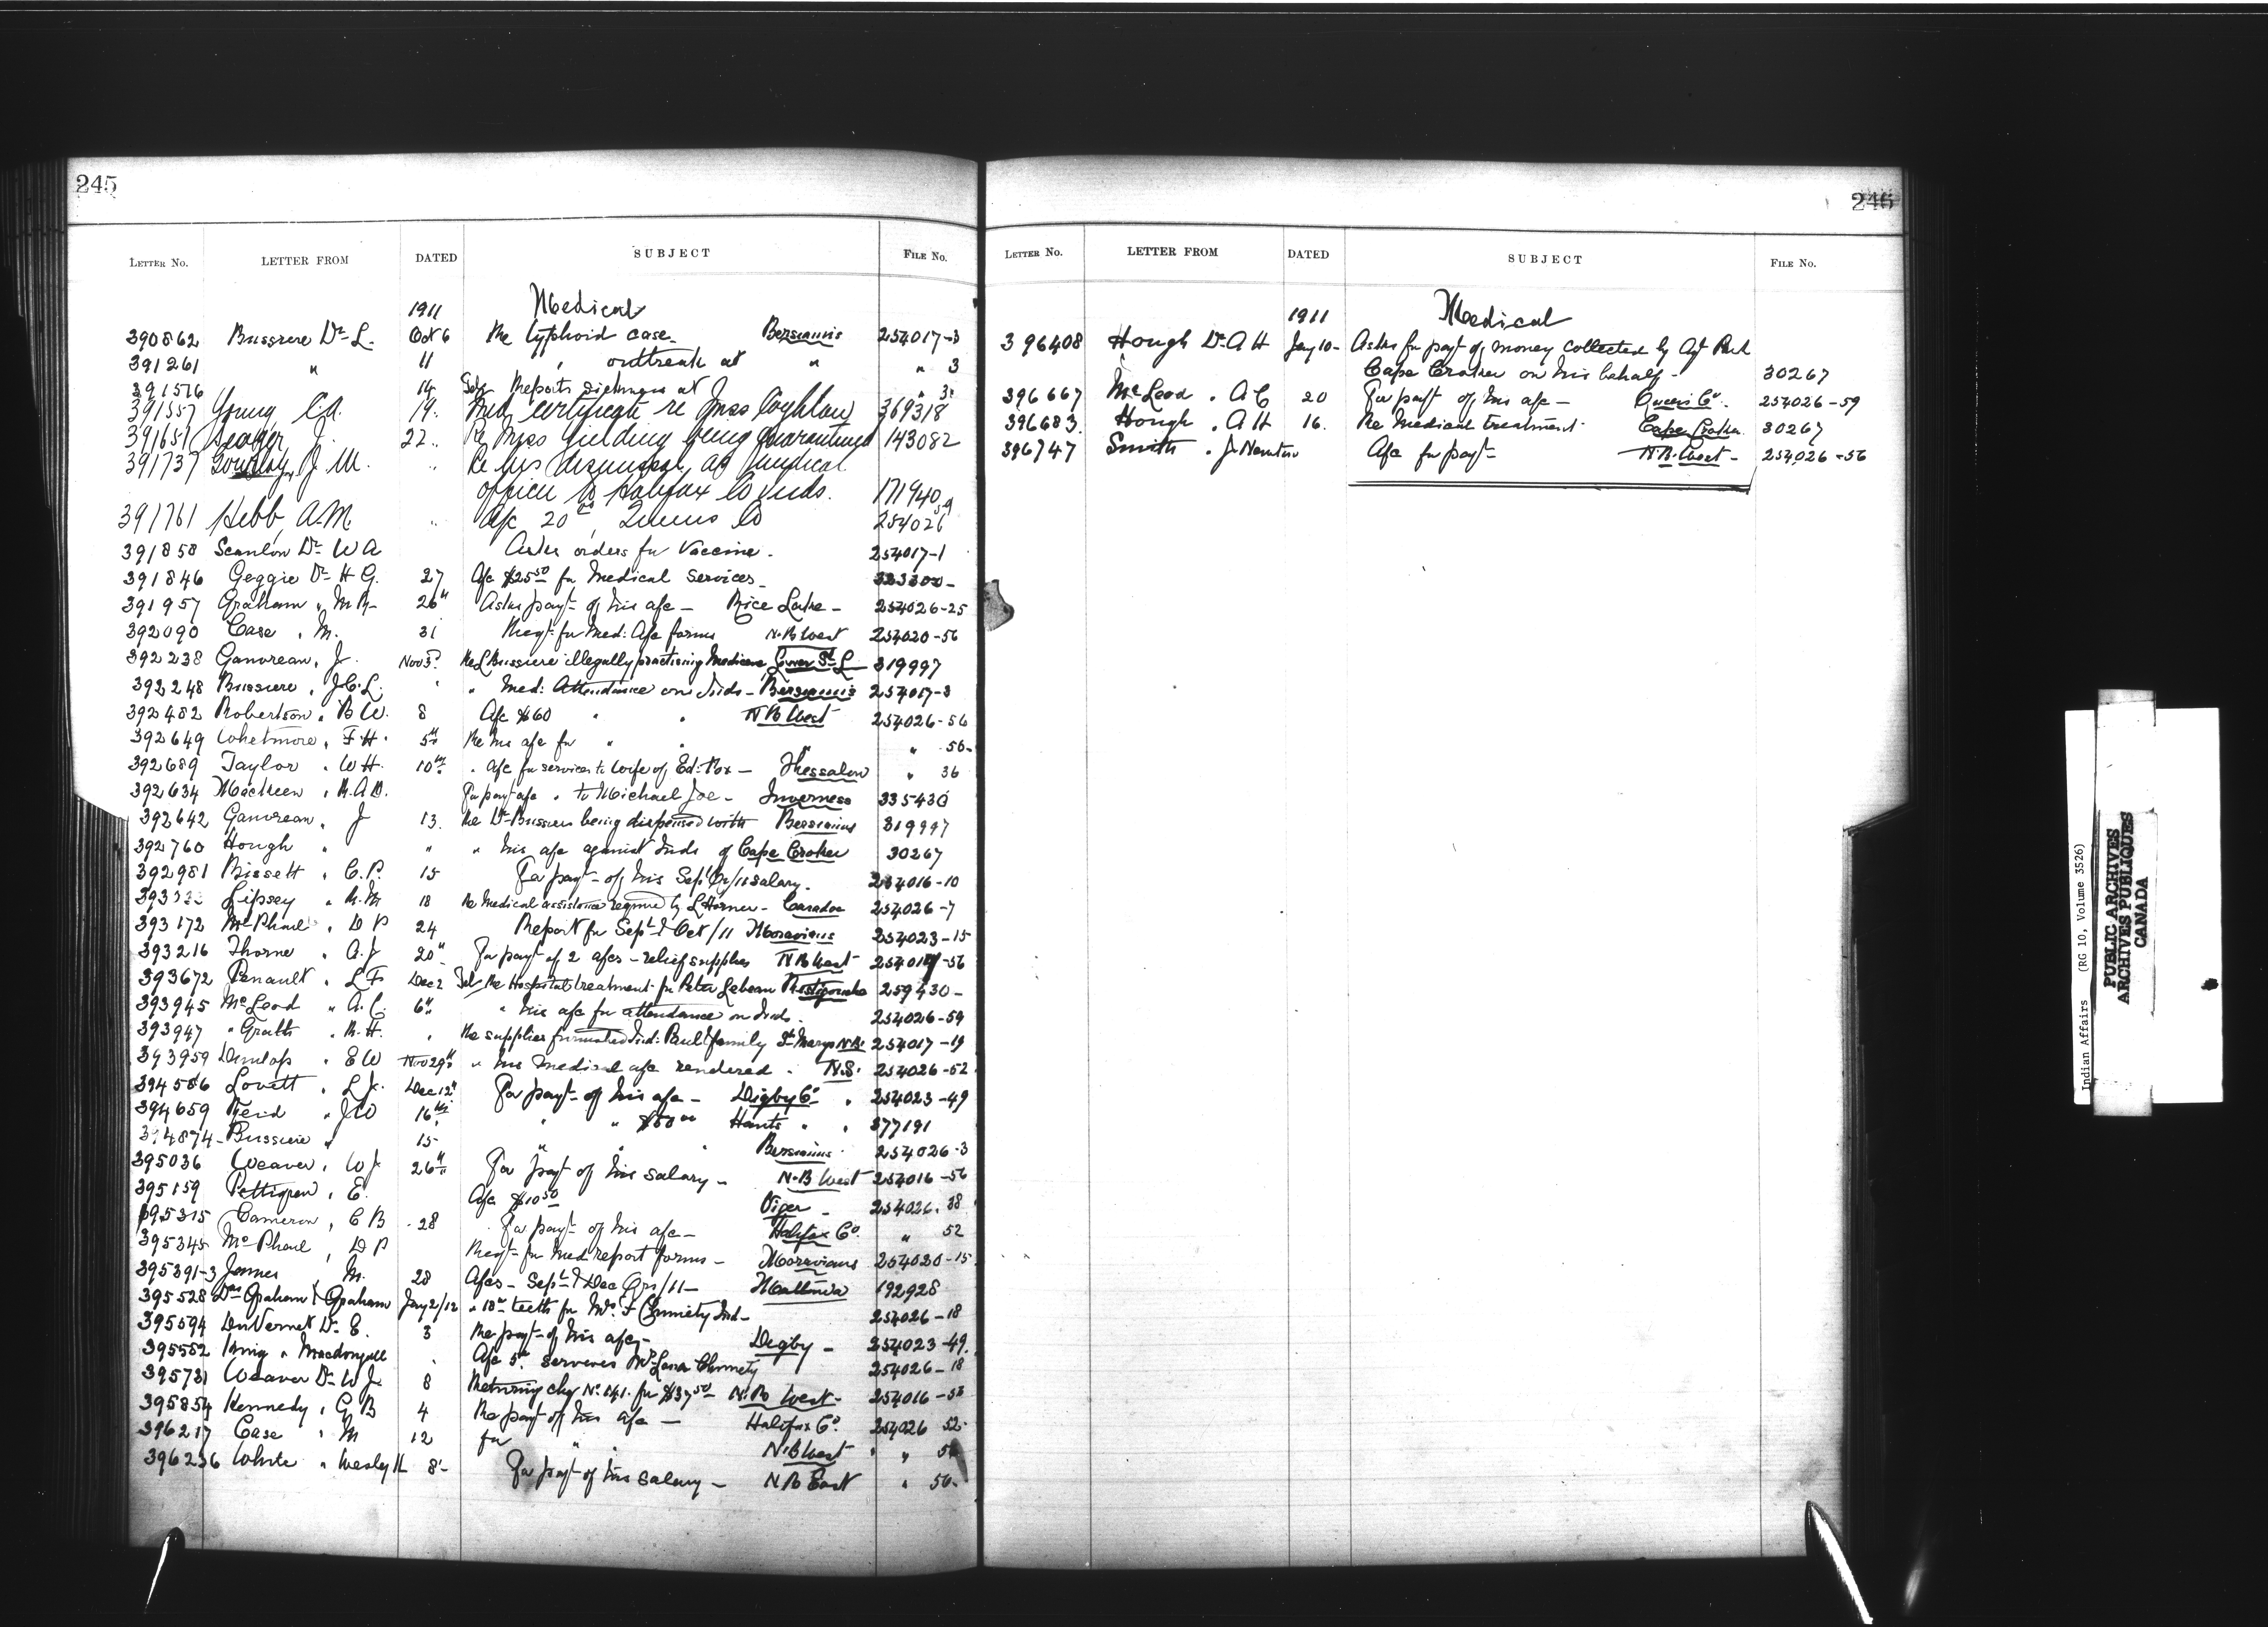 245
LETTER No. LETTER FROM DATED SUBJECT FILE No.
1911 Medical
390862 Bussiere Dr L. Oct 6 Re typhoid case Bersimis 254017-3
391261 " 11 " outbreak at " " 3
391576 14 Reports at " 3
391557 Young C.A. 19 Med. Certificate re Miss Coghlan 369318
391651 Seager J. 22 Re Miss Fielding being quarantined 143082
391737 Gourlay, J M. " Re his dismissal as medical
officer to Halifax Co Inds. 171940
391761 Hebb, A.M. " A/c 20 00, Queens Co 254026 59
391858 Scanlon Dr W A Asks orders for Vaccine. 254017-1
391846 Geggie Dr H G. 27 A/c $25 50 for Medical Services
391957 Graham " M R 26" Asks payt of his a/c - Rice Lake - 254026-25
392090 Case " M. 31 Reqt for Med: A/c forms N.B West 254020-56
392238 Ganvreau " J. Nov 3 Re L Bussiere illegally practising Medicine Lower St L 319997
392248 Bussiere " J.C.L. " " Med: Attendance on Inds - Bersimis 254017-3
392482 Robertson " B W. 8 A/c $60 " " N B West 254026-56
392649 Whetmore " F H. 5th Re his a/c for " " " " 56
392689 Taylor " W H. 10th " A/c for services to wife of Ed: Fox - Thessalon " 36
392634 MacKeen " R.A.D. For payt a/c " to Michael Joe - Inverness 335430
392642 Ganvreau " J 13. Re Dr Bussiere being dispensed with Bersimis 319997
392760 Hough " " " his a/c against Inds of Cape Croker 30267
392981 Bissett " C. P. 15 For payt of his Sept Qr/11 salary. 254016-10
Lipsey " 18 Re Medical assistance required by L Horner - Caradoc 254026-7
393172 McPhail " D P 24 Report for Sept & Oct/11 Moravians 254023-15
393216 Thorne " A.J 20" For payt of 2 a/cs - relief supplies N B West -56
393672 Pinault " L F Dec 2 Tel Re Hospital treatment for Peter Lebeau Restigouche 259430-
393945 McLeod " A.C. 6" " his a/c for attendance on Inds. 254026-59
393947 " Grath " R.H. " Re supplies furnished Ind: Paul & family St Marys N.B. 254017-19
393959 Dunlop " E W Nov 29th " his medical a/c rendered - N.S. 254026-52
394586 Lovett " L J. Dec 12" For payt of his a/c - Digby Co " 254023-49
394659 Reid " J W 16th " " $50 00 Hants " " 377191
394874 Bussiere " 15 " " " Bersimis 254026-3
395036 Weaver " W J 26th For payt of his salary - N.B West 254016-56
395159 Pettigrew " E. A/c $10 50 Viger - 254026-38
395315 Cameron " C B 28 For payt of his a/c - Halifax Co " 52
395345 McPhail " D P Reqt for Med report forms - Moravians 254020-15
395391-3 James " M. 28 A/cs - Sept & Dec Qrs/11 - 192928
395528 Drs Graham & Graham Jany 2/12 " 18 00 teeth for Mrs F Chimiety Ind - 254026-18
395594 DuVernet Dr E. 3 Re payt of his a/c - Digby - 254023-49
395552 King " Macdougall " A/c 5 00 services Mrs Chimiety 254026-18
395731 Weaver Dr W J. 8 Returning chq No 141. for $37 50 - N.B West - 254016-56
395854 Kennedy " G B 4 Re payt of his a/c - Halifax Co. 254026 52
396217 Case " M 12 for " " N.B West " " 56
396236 White " Wesley H 8 For payt of his salary - N B East " 56-
246
LETTER No. LETTER FROM DATED SUBJECT FILE No.
1911 Medical
396408 Hough Dr A H Jany 10 - Asks for payt of money collected by Agt Park
Cape Croker on his behalf - 30267
396667 McLeod " A C 20 For payt of his a/c - Queens Co. 254026-59
396683 Hough " A H 16. Re Medical treatment Cape Croker 30267
396747 Smith " J. Newton A/c for payt - N.B. West - 254026-56
Indian Affairs (RG 10, Volume 3526)
PUBLIC ARCHIVES
ARCHIVES PUBLIQUES
CANADA